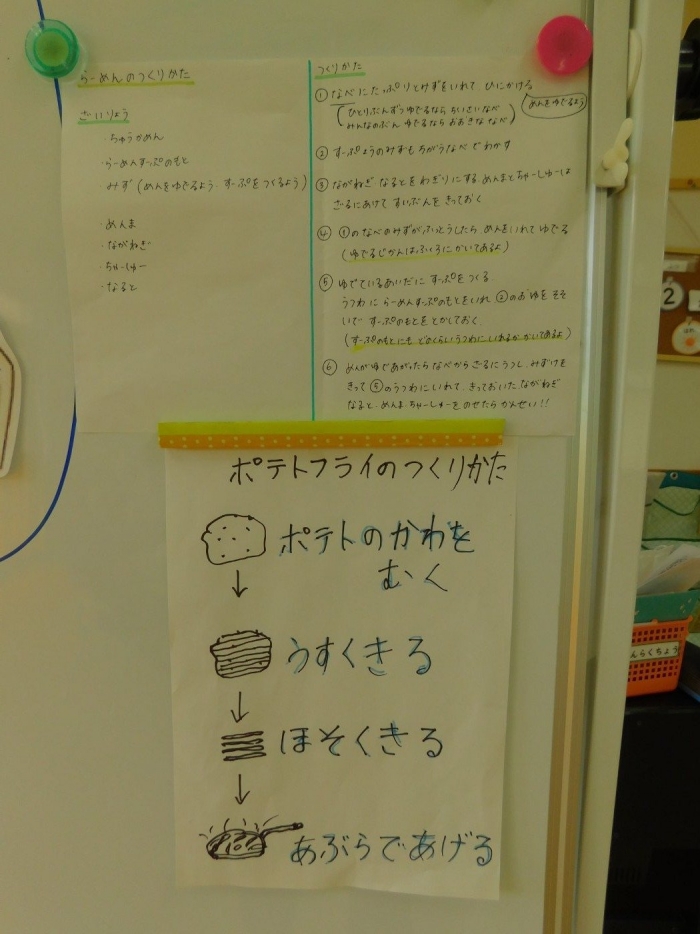 らーめんのつくりかた
ざいりょう
・ちゅうかめん
・らーめんすーぷのもと
・みず(めんをゆでるよう・すーぷをつくるよう)
・めんま
・ながねぎ
・ちゃーしゅー
・なると
つくりかた
① なべにたっぷりとみずをいれて、ひにかける
めんをゆでるよう
(ひとりぶんずつゆでるなら ちいさいなべ
みんなのぶん ゆでるなら おおきな なべ)
② すーぷようのみずも ちがうなべ でわかす
③ ながねぎ なるとを わぎりに する めんまとちゃーしゅーは
ざるにあけて すいぶんを きっておく
④ ①の なべのみずが ふっとうしたら めんをいれて ゆでる
(ゆでるじかんは ふくろに かいてあるよ)
⑤ ゆでているあいだに すーぷを つくる
うつわ に らーめんすーぷのもとをいれ ②のおゆを そそ
いで すーぷのもとを とかしておく
(すーぷのもとにも どのくらいうつわに いれるか かいてあるよ)
⑥ めんが ゆであがったら なべから ざるに うつし みずけを
きって ⑤の うつわに いれて、きっておいた ながねぎ
なると・めんま・ちゃーしゅーを のせたら かんせい!!
ポテトフライのつくりかた
ポテトのかわを
むく
↓
うすくきる
↓
ほそくきる
↓
あぶらであげる
2
んらくちょう